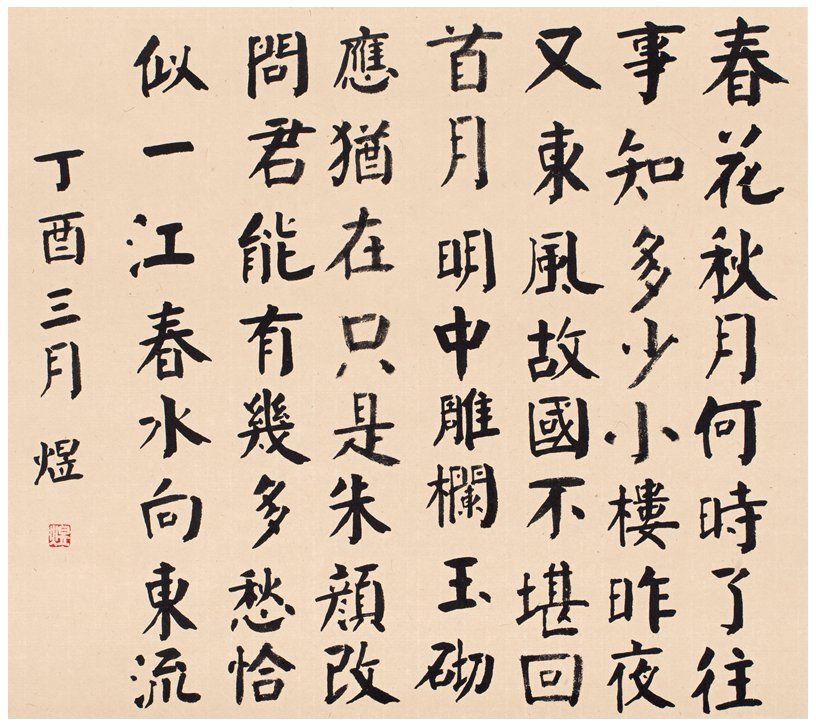 春花秋月何時了往
事知多少小樓昨夜
又東風故國不堪回
首月明中雕欄玉砌
應猶在只是朱顏改
問君能有幾多愁恰
似一江春水向東流
丁酉三月煜
煜